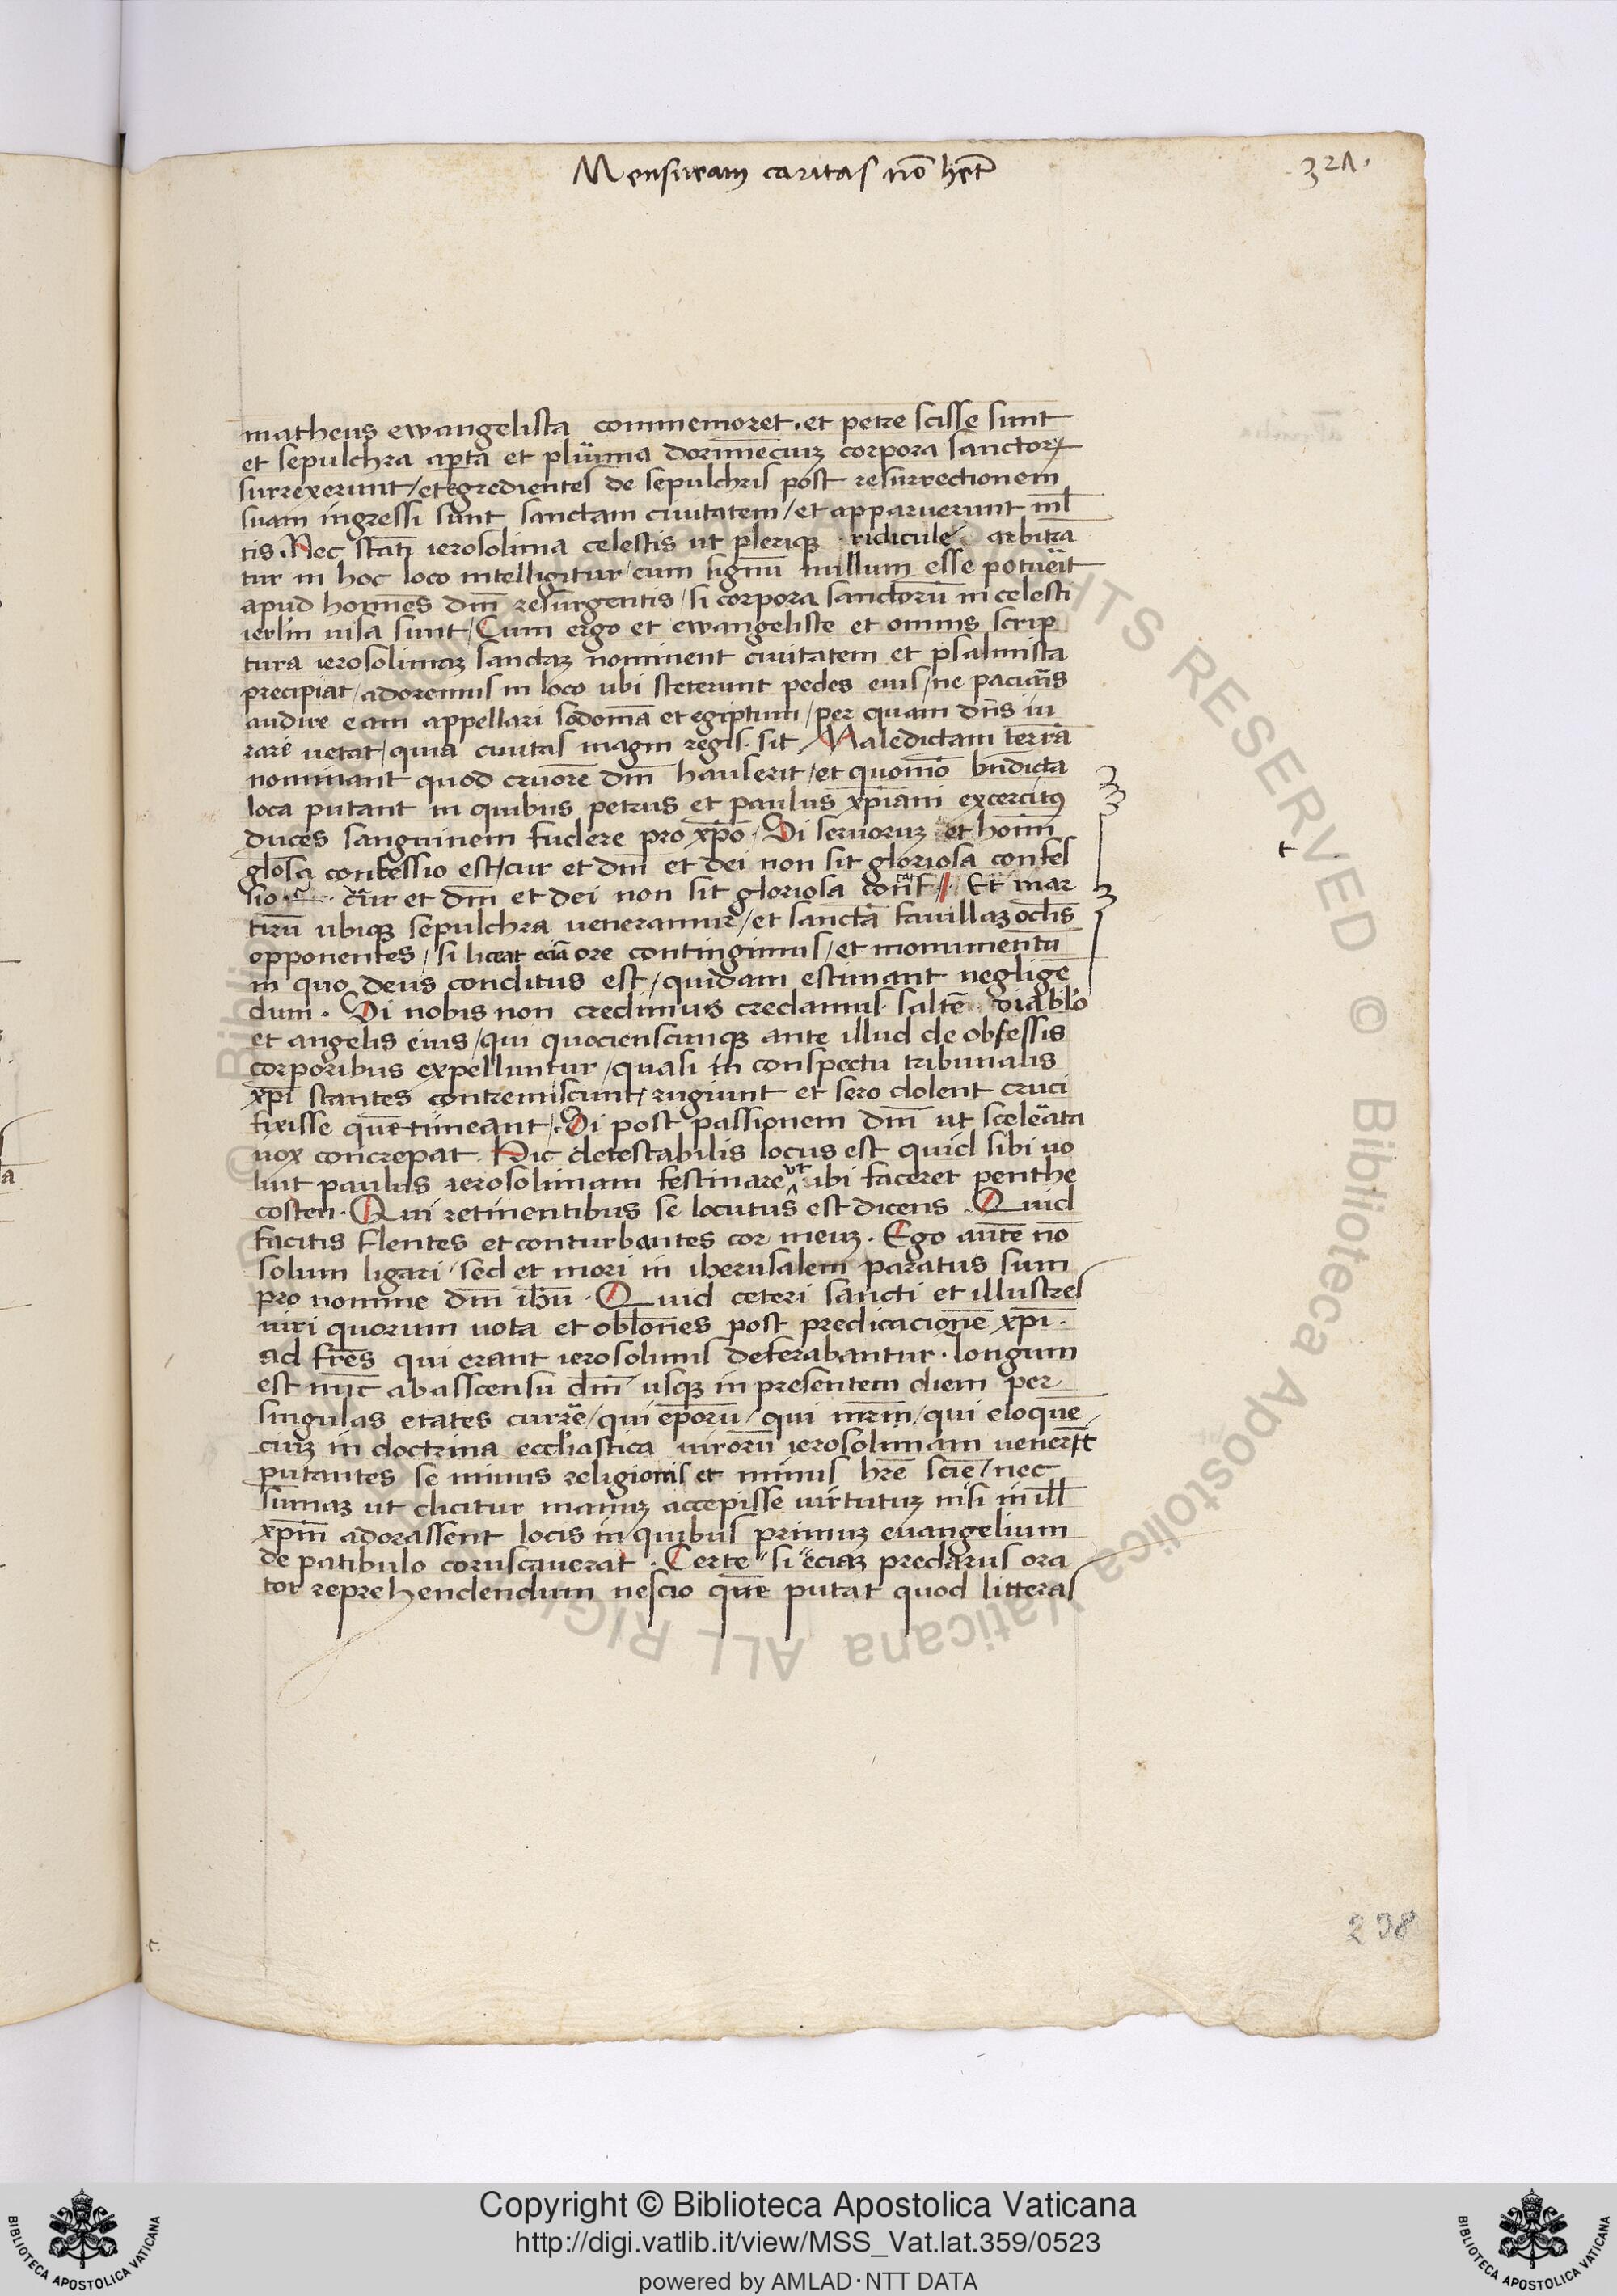 Mensuram caritas nō hēt
321.
matheus ewangelista commemoret. et petre scisse sunt
et sepulchra apta et plurima dormiēciuꝫ corpora sanctoꝝ
surrexerunt / et egredientes de sepulchris post resurrectionem
suam ingressi sunt sanctam ciuitatem / et apparuerunt ml
tis. Nec statī ierosolima celestis ut pleriqꝫ ridicule arbitrā
tur in hoc loco intelligitur / cum signū nullum esse potuerit
apud homīes dm̄ resurgentis / si corpora sanctorū in celesti
ierlm̄ uisa sunt / Cum ergo et ewangeliste et omnis scrip
tura ierosolimaꝫ sanctaꝫ nominent ciuitatem et psalmista
precipiat / adoremus in loco ubi steterunt pedes eius / ne paciaris
audire eam appellari sodomā et egiptum / per quam dn̄s iu
rare uetat / quia ciuitas magni regis. sit Maledictam terrā
nominant quod cruorē dm̄ hauserit / et quomō bn̄dicta
loca putant in quibus petrus et paulus xp̄iani excercitꝰ
duces sanguinem fudere pro xp̄o. Si seruoruꝫ et homī
gl̄osa confessio est / cur et dm̄ et dei non sit gloriosa confes
sio cur et dm̄ et dei non sit gloriosa conf // Et mar
tirū ubiqꝫ sepulchra ueneramur / et sanctā fauillaꝫ ocl̄is
opponentes / si liceat eciā ore contingimus / et monumentū
in quo deus conditus est / quidam estimant negligē
dum. Si nobis non credimus credamus saltē diablo
et angelis eius / qui quocienscunqꝫ ante illud de obsessis
corporibus expelluntur / quasi in conspectu tribunalis
xp̄i stantes contremiscunt / rugiunt et sero dolent cruci
fixisse quē timeant /. Si post passionem dm̄ ut scelerata
uox concrepat. Hic detestabilis locus est quid sibi uo
luit paulus ierosolimam festinare ut ibi faceret penthe
costen. Qui retinentibus se locutus est dicens. Quid
facitis flentes et conturbantes cor meuꝫ. Ego autē nō
solum ligari / sed et mori in iherusalem paratus sum
pro nomine dm̄ ihū. Quid ceteri sancti et illustres
uiri quorum uota et obl̄ones post predicacionē xp̄i.
ad fres̄ qui erant ierosolimis deferabantur. longum
est nūc ab asscensu dm̄ usqꝫ in presentem diem per
singulas etates currē / qui ep̄orū / qui mr̄m / qui eloquē
ciuꝫ in doctrina eccl̄iastica uirorū ierosolimam uenerīt
putantes se minus religionis et minus hr̄e scīe / nec
sum̄aꝫ ut dicitur manuꝫ accepisse uirtutuꝫ nisi in ill̄
xpm̄ adorassent locis in quibus primuꝫ euangelium
de patibulo coruscauerat. Certe si eciaꝫ preclarus ora
tor reprehendendum nescio quē putat quod litteras
238
Copyright © Biblioteca Apostolica Vaticana
http://digi.vatlib.it/view/MSS_Vat.lat.359/0523
powered by AMLAD·NTT DATA
BIBLIOTECA APOSTOLICA VATICANA
BIBLIOTECA APOSTOLICA VATICANA